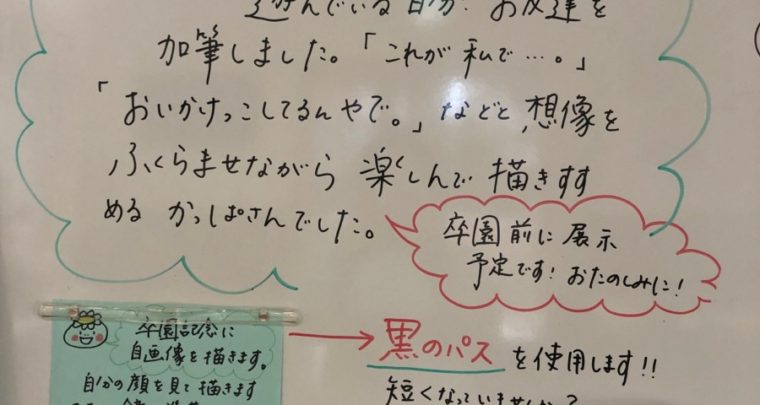 遊んでいる自分、お友達を
加筆しました。「これが私で…。」
「おいかけっこしてるんやで。」などと、想像を
ふくらませながら 楽しんで 描きすす
める かっぱさんでした。
卒園前に展示
予定です！おたのしみに！
卒園記念に
自画像を描きます。
自分の顔を見て描きます
黒のパス を使用します!!
短くなっていませんか？